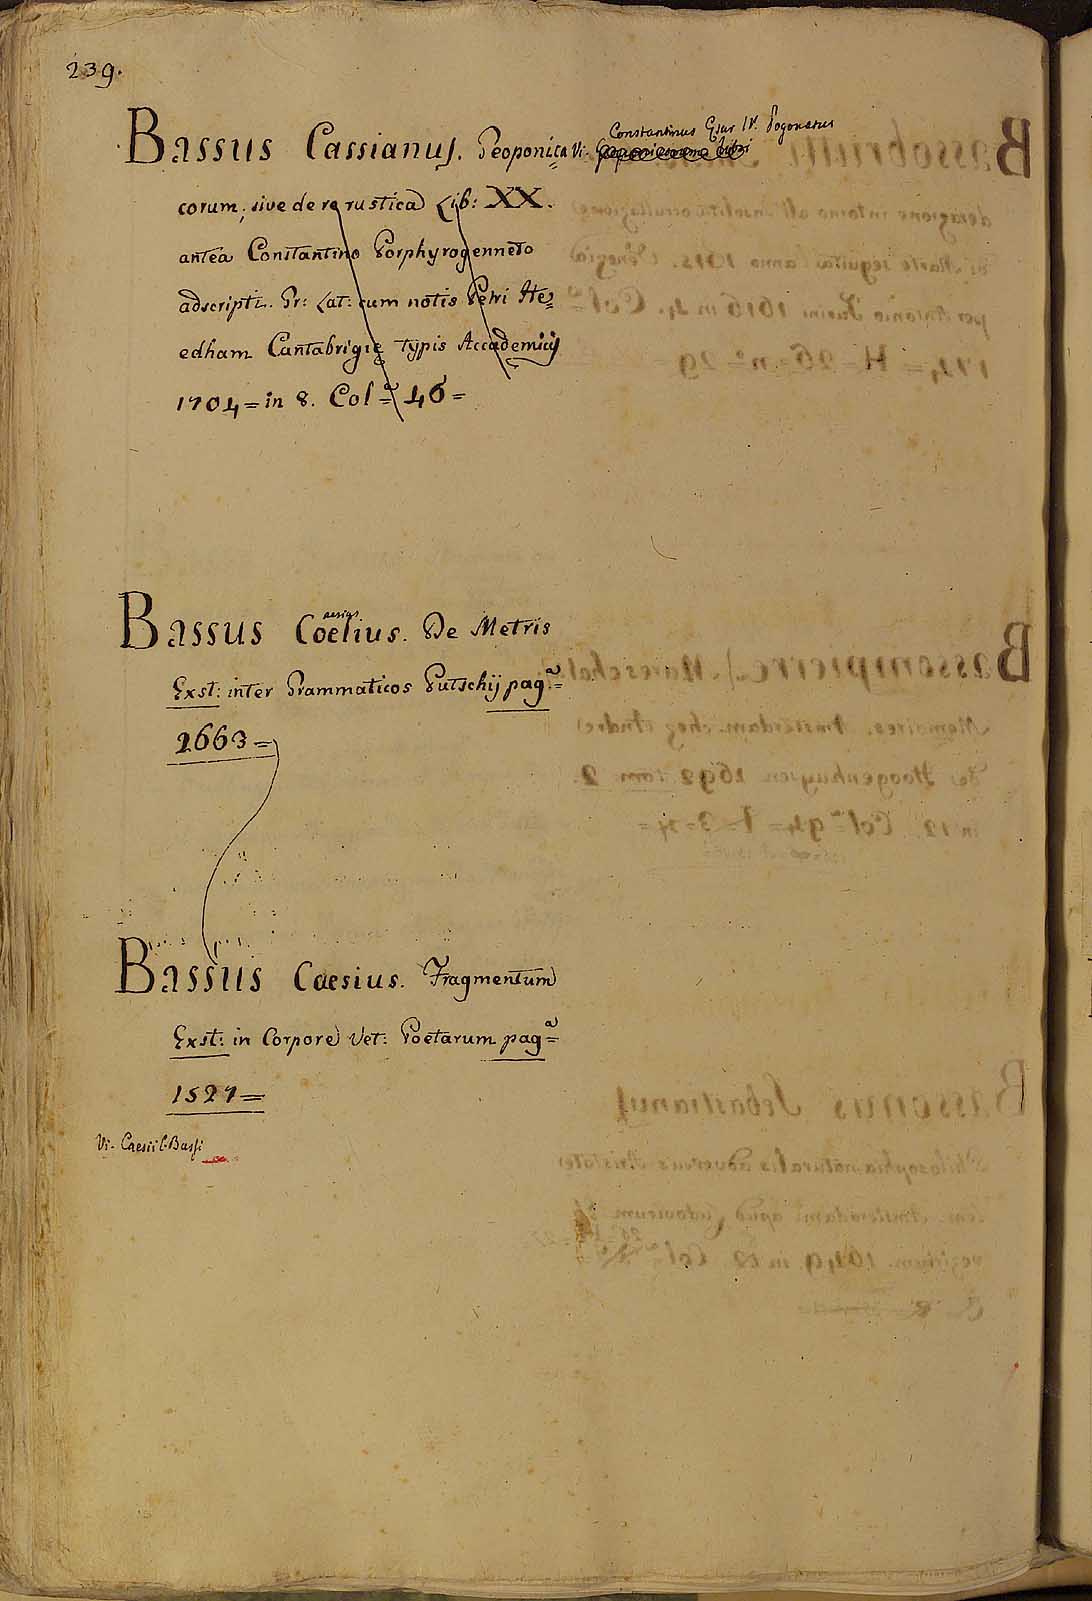 239.
Constantinus Cæsar IV. Pogonatus
Bassus Cassianus. Geoponica Vi. Geoponicorum Libri
corum; sive de re rustica Lib: XX.
antea Constantino Porphyrogenneto
adscripti. Gr: Lat: cum notis Petri Ne=
edham Cantabrigię typis Accademicis
1704= in 8. Colª= 46=
aesius
Bassus Coelius. De Metris
Exst: inter Grammaticos Putschij pagª=
2663=
Bassus Caesius. Fragmentum
Exst: in Corpore Vet: Poetarum pagª=
1527=
Vi. Caesii C. Bassi